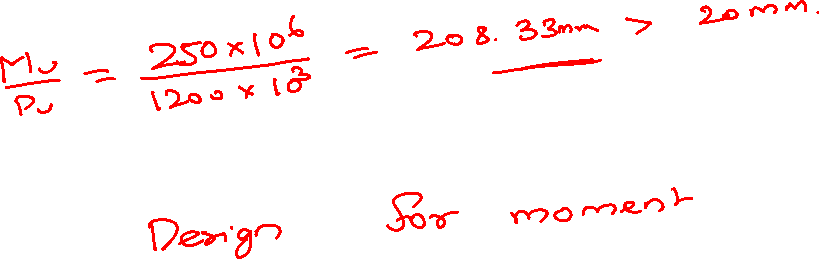 Mu/Pu = 250×10^6/1200×10^3 = 208.33mm > 20mm.
Design for moment